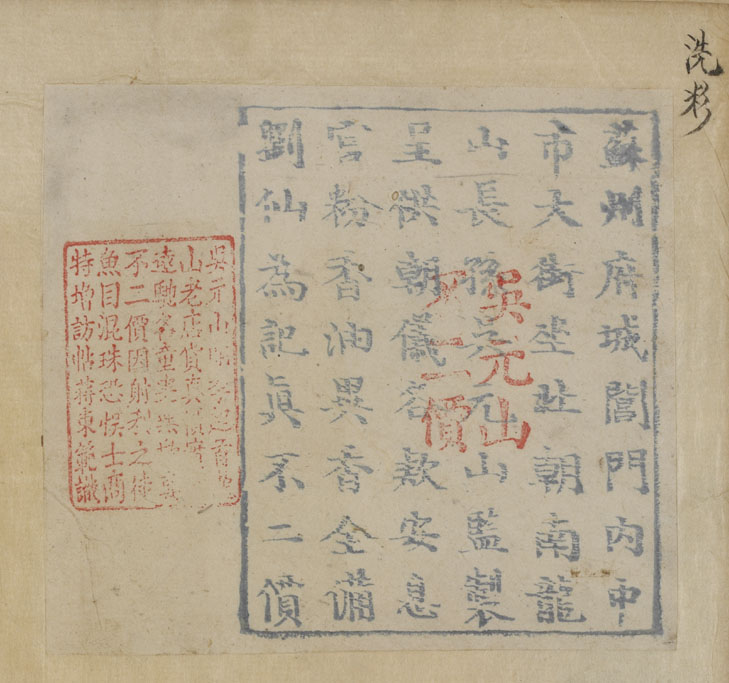 洗
蘇州府城閶門內中
市大街坐北朝南龍
山長孫吳元山監製
呈供朝儀各款安息
官粉香油異香全備
劉仙為記眞不二價
吳元山
不二價
吳元山
山老店貨真價實
遠馳名童叟無欺
不二價因射利之徒
魚目混珠恐悞士商
特增訪帖蔣東範識